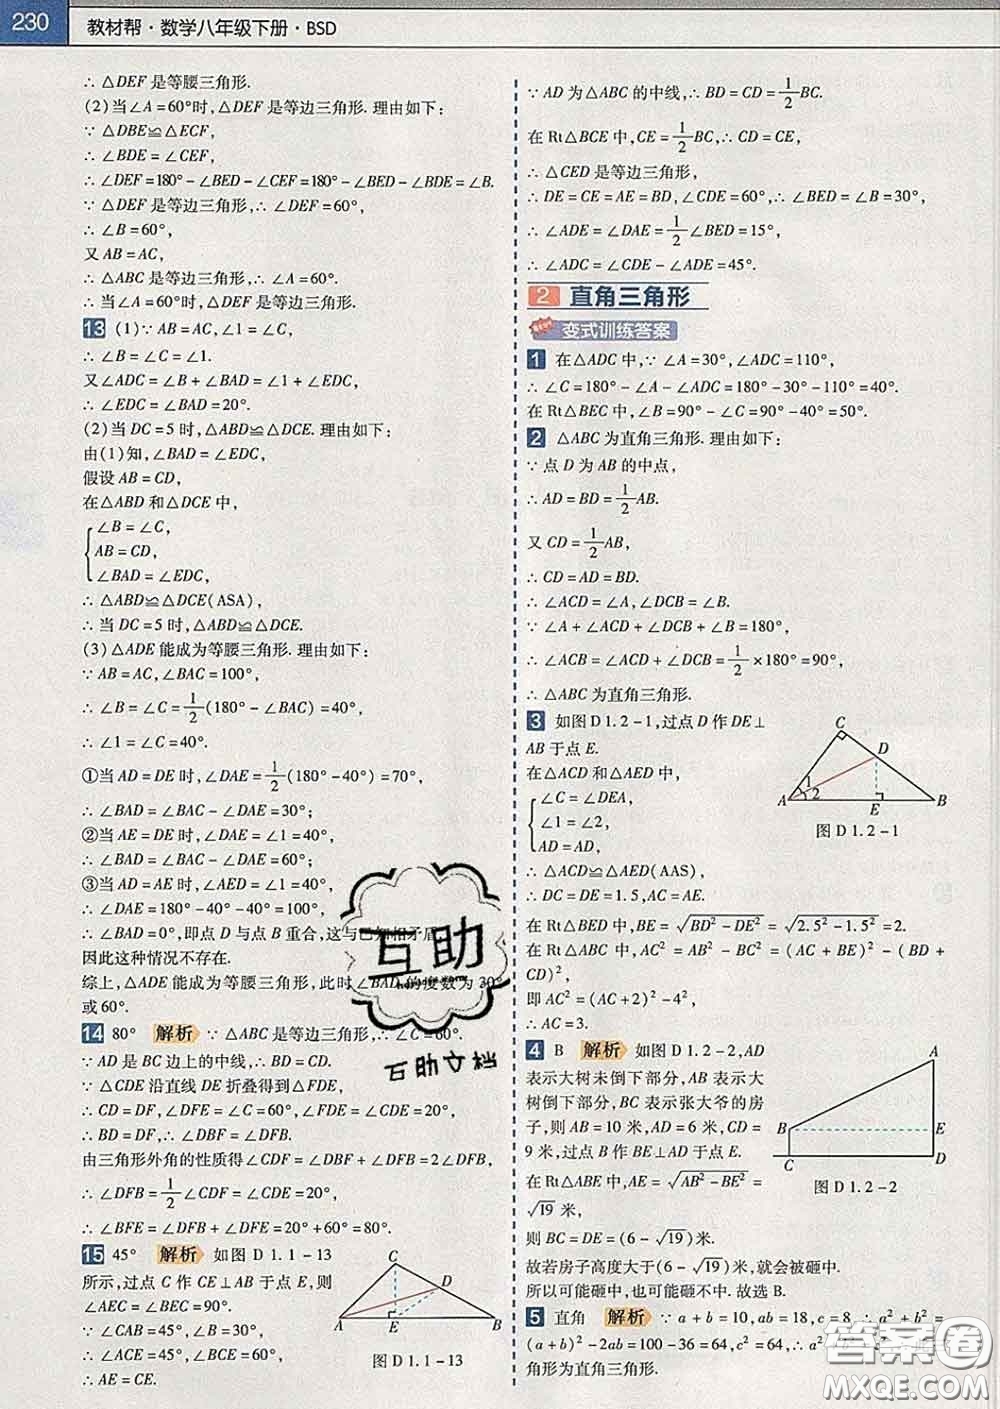 230 教材帮·数学八年级下册·BSD
∴ △DEF 是等腰三角形.
(2)当∠A=60°时,△DEF 是等边三角形. 理由如下:
∵ △DBE≌△ECF,
∴ ∠BDE=∠CEF,
∴ ∠DEF=180°-∠BED-∠CEF=180°-∠BED-∠BDE=∠B.
∵ △DEF 是等边三角形,∴ ∠DEF=60°,
∴ ∠B=60°,
又 AB=AC,
∴ △ABC 是等边三角形,∴ ∠A=60°.
∴ 当∠A=60°时,△DEF 是等边三角形.
13 (1)∵ AB=AC,∠1=∠C,
∴ ∠B=∠C=∠1.
又∠ADC=∠B+∠BAD=∠1+∠EDC,
∴ ∠EDC=∠BAD=20°.
(2)当 DC=5时,△ABD≌△DCE. 理由如下:
由(1)知,∠BAD=∠EDC,∠B=∠C.
假设 AB=CD,
在△ABD 和△DCE 中,
∠B=∠C,
AB=CD,
∠BAD=∠EDC,
∴ △ABD≌△DCE(ASA),
∴ 当 DC=5时,△ABD≌△DCE.
(3)△ADE 能成为等腰三角形. 理由如下:
∵ AB=AC,∠BAC=100°,
∴ ∠B=∠C=1/2(180°-∠BAC)=40°,
∴ ∠1=∠C=40°.
①当 AD=DE 时,∠DAE=1/2(180°-40°)=70°,
∴ ∠BAD=∠BAC-∠DAE=30°;
②当 AE=DE 时,∠DAE=∠1=40°,
∴ ∠BAD=∠BAC-∠DAE=60°;
③当 AD=AE 时,∠AED=∠1=40°,
∴ ∠DAE=180°-40°-40°=100°,
∴ ∠BAD=0°,即点 D 与点 B 重合,这与已知相矛盾,
因此这种情况不存在.
综上,△ADE 能成为等腰三角形,此时∠BAD 的度数为 30°
或 60°.
14 80° 解析 ∵ △ABC 是等边三角形,∴ ∠C=60°.
∵ AD 是 BC 边上的中线,∴ BD=CD.
∵ △CDE 沿直线 DE 折叠得到△FDE,
∴ CD=DF,∠DFE=∠C=60°,∠FDE=∠CDE=20°,
∴ BD=DF,∴ ∠DBF=∠DFB.
由三角形外角的性质得∠CDF=∠DBF+∠DFB=2∠DFB,
∴ ∠DFB=1/2∠CDF=∠CDE=20°,
∴ ∠BFE=∠DFB+∠DFE=20°+60°=80°.
15 45° 解析 如图 D 1.1-13
所示,过点 C 作 CE⊥AB 于点 E,则
∠AEC=∠BEC=90°.
∵ ∠CAB=45°,∠B=30°,
∴ ∠ACE=45°,∠BCE=60°,
∴ AE=CE.
C
D
A E B
图 D 1.1-13
∵ AD 为△ABC 的中线,∴ BD=CD=1/2BC.
在 Rt△BCE 中,CE=1/2BC,∴ CD=CE,
∴ △CED 是等边三角形,
∴ DE=CE=AE=BD,∠CDE=60°,∴ ∠BED=∠B=30°,
∴ ∠ADE=∠DAE=1/2∠BED=15°,
∴ ∠ADC=∠CDE-∠ADE=45°.
2 直角三角形
变式训练答案
1 在△ADC 中,∵ ∠A=30°,∠ADC=110°,
∴ ∠C=180°-∠A-∠ADC=180°-30°-110°=40°.
在 Rt△BEC 中,∠B=90°-∠C=90°-40°=50°.
2 △ABC 为直角三角形. 理由如下:
∵ 点 D 为 AB 的中点,
∴ AD=BD=1/2AB.
又 CD=1/2AB,
∴ CD=AD=BD.
∴ ∠ACD=∠A,∠DCB=∠B.
∵ ∠A+∠ACD+∠DCB+∠B=180°,
∴ ∠ACB=∠ACD+∠DCB=1/2×180°=90°,
∴ △ABC 为直角三角形.
3 如图 D 1.2-1,过点 D 作 DE⊥
AB 于点 E.
在△ACD 和△AED 中,
∠C=∠DEA,
∠1=∠2,
AD=AD,
∴ △ACD≌△AED(AAS),
∴ DC=DE=1.5,AC=AE.
C
D
1
2
A E B
图 D 1.2-1
在 Rt△BED 中,BE=√(BD²-DE²)=√(2.5²-1.5²)=2.
在 Rt△ABC 中,AC²=AB²-BC²=(AC+BE)²-(BD+
CD)²,
即 AC²=(AC+2)²-4²,
∴ AC=3.
4 B 解析 如图 D 1.2-2,AD
表示大树未倒下部分,AB 表示大
树倒下部分,BC 表示张大爷的房
子,则 AB=10 米,AD=6 米,CD=
9 米,过点 B 作 BE⊥AD 于点 E.
在 Rt△ABE 中,AE=√(AB²-BE²)=
√19米,
则 BC=DE=(6-√19)米.
故若房子高度大于(6-√19)米,就会被砸中.
所以可能砸中,也可能砸不中. 故选 B.
A
B E
C D
图 D 1.2-2
5 直角 解析 ∵ a+b=10,ab=18,c=8,∴ a²+b²=
(a+b)²-2ab=100-36=64,c²=64,∴
角形为直角三角形.
互助
互助文档
答案圈
MXQE.COM